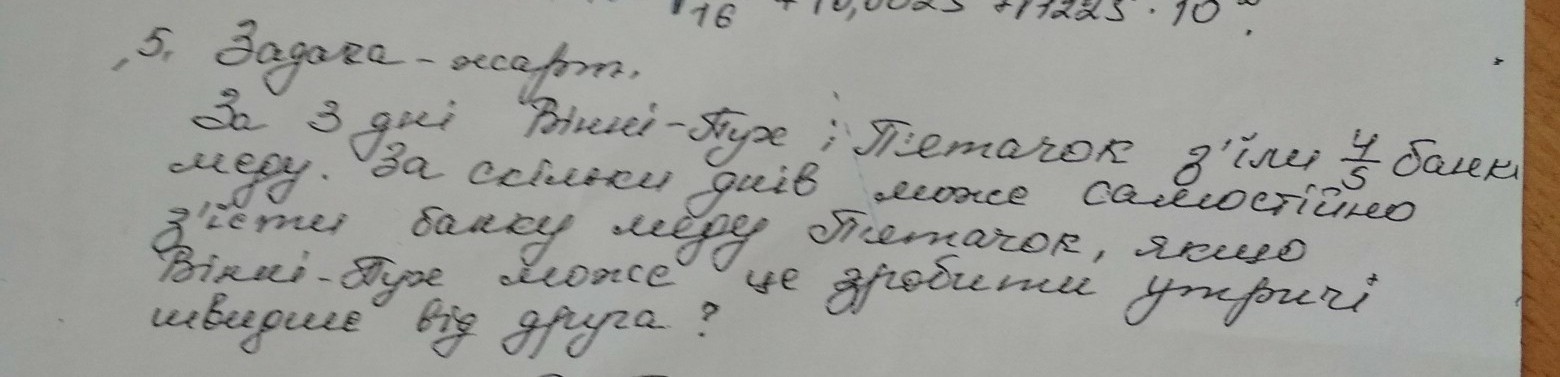 16 + 10,0023 + 11223 · 10
5. Задача - жарт.
За 3 дні Вінні-Пух і П'ятачок з'їли 4/5 банки
меду. За скільки днів може самостійно
з'їсти банку меду П'ятачок, якщо
Вінні-Пух може це зробити утричі
швидше від друга?